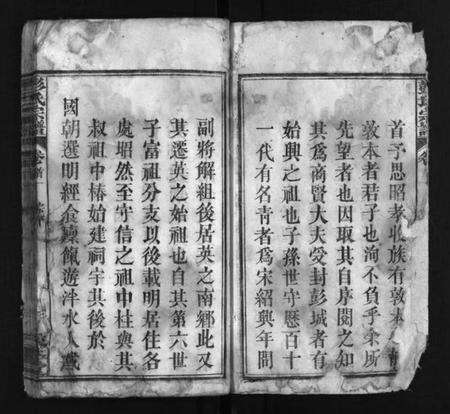 首予思昭孝收族有敦本
敦本者君子也洵不負乎余所
先望者也因取其自序閱之知
其爲商賢大夫受封彭城者有
始興之祖也子孫世守歷百十
一代有名青者爲宋紹興年間
彭氏宗譜
卷首
副將解組後居英之南鄉此又
其遷英之始祖也自其第六世
子富祖分支以後載明居住各
處昭然至守信之祖中柱與其
叔祖中椿始建祠宇其後於
國朝選明經食廩餼遊泮水人咸